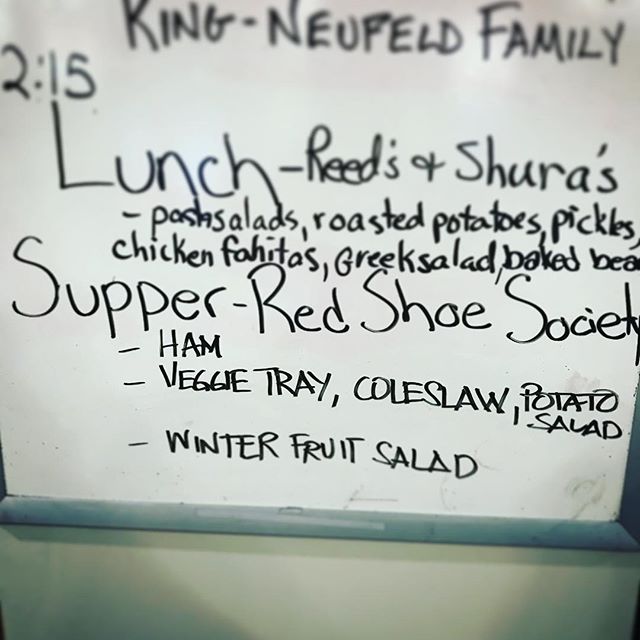 KING-NEUFELD FAMILY
2:15
Lunch-Reed's & Shura's
- salads, roasted potatoes, pickles,
chicken fahitas, Greek salad, baked bea
Supper-Red Shoe Society
- HAM
- VEGGIE TRAY, COLESLAW, POTATO
SALAD
- WINTER FRUIT SALAD